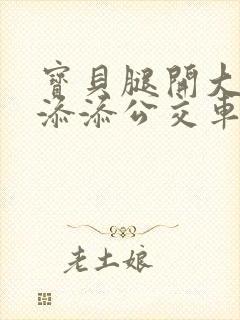 寶貝腿開大
添添公交車
老土娘